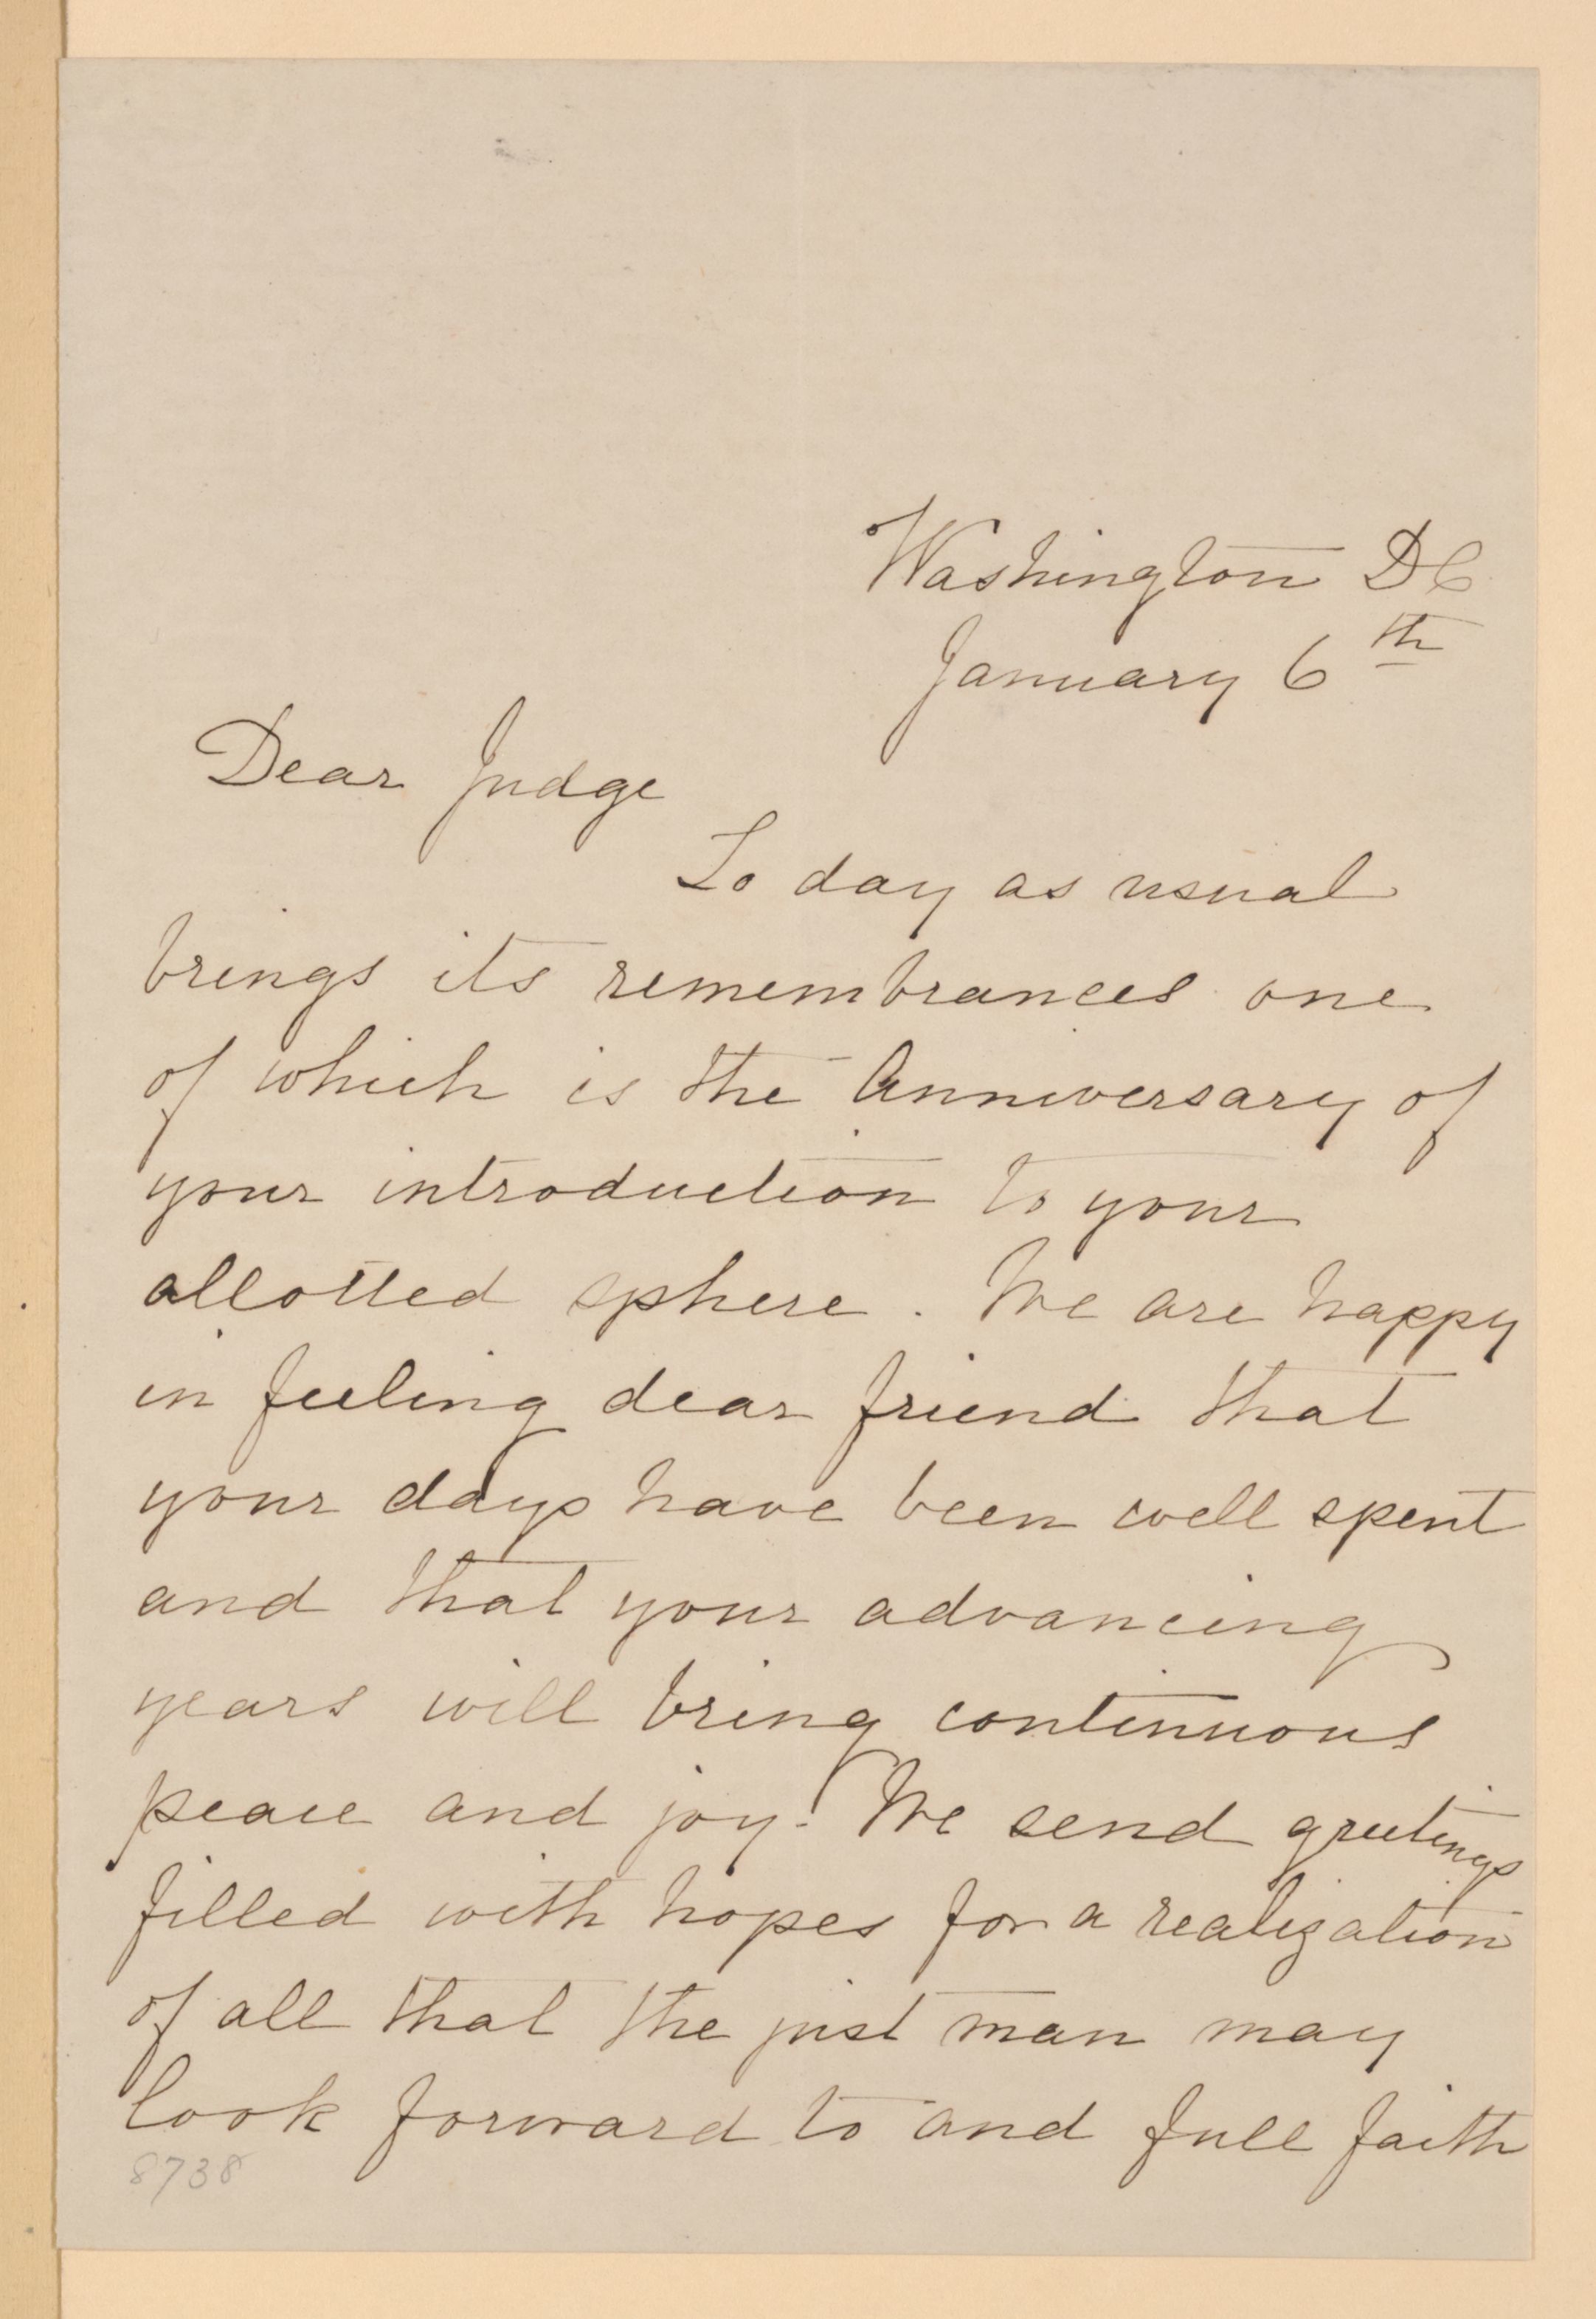 Washington DC
January 6th
Dear Judge
To day as usual
brings its remembrances one
of which is the Anniversary of
your introduction to your
allotted sphere. We are happy
in feeling dear friend that
your days have been well spent
and that your advancing
years will bring continuous
peace and joy. We send greetings
filled with hopes for a realization
of all that the just man may
look forward to and full faith
8738